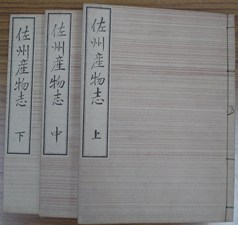 佐州産物志 上
佐州産物志 中
佐州産物志 下